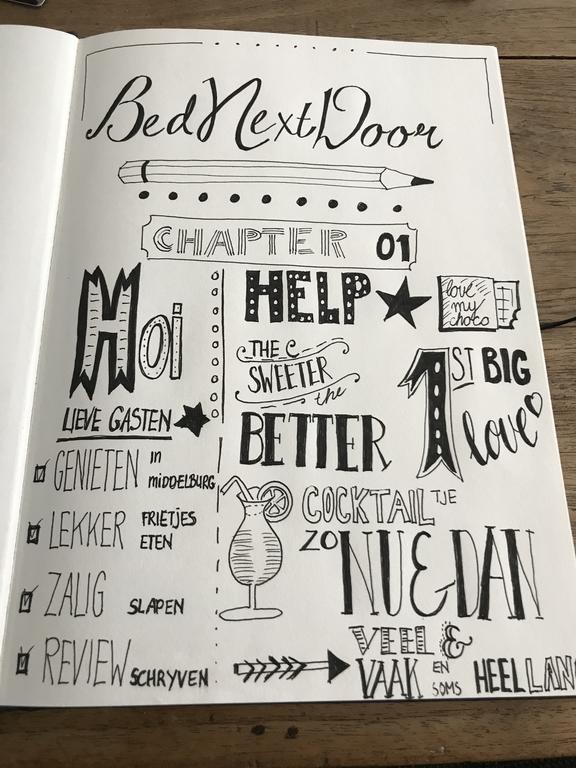 Bed Next Door
CHAPTER 01
Hoi
LIEVE GASTEN
GENIETEN in MIDDELBURG
LEKKER FRIETJES ETEN
ZALIG SLAPEN
REVIEW SCHRYVEN
HELP
love my choco
THE SWEETER the
BETTER
1ST BIG
love
COCKTAILTJE
ZO NU & DAN
VEEL &
VAAK EN SOMS HEEL LANG